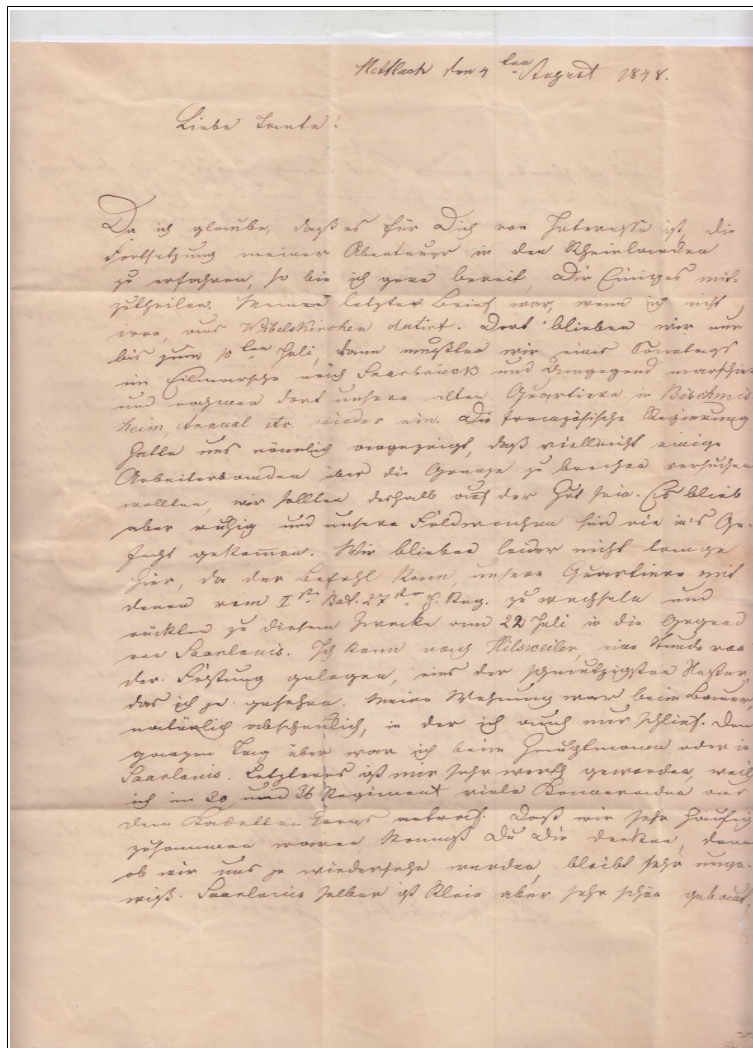 Mettlach den 4ten August 1848.
Liebe Tante!
Da ich glaube, daß es für Dich von Interesse ist, die
Fortsetzung meiner Abenteuer in den Rheinlanden
zu erfahren, so bin ich gern bereit, Dir Einiges mit-
zutheilen. Meine letzter Brief war, wenn ich nicht
irre, aus Wibelskirchen datirt. Dort blieben wir nur
bis zum ten Juli, dann mußten wir eines Sonntags
im Eilmarsche nach Saarbrück und Umgegend marschir
und nahmen dort unsere alten Quartiere in Bischmis
heim, Arnual etc. wieder ein. Die französische Regierung
hatte uns nämlich angezeigt, daß vielleicht einige
Arbeiterbanden über die Grenze zu brechen versuchen
wollten, wir sollten deshalb auf der Hut sein. Es blieb
aber ruhig und unsere Feldwachen sind nie in's Ge-
fecht gekommen. Wir blieben leider nicht lange
hier, da der Befehl kam, unsere Quartiere mit
denen vom II ten Bat. 27 sten J. Reg. zu wechseln und
rückten zu diesem Zwecke am 22 Juli in die Gegend
von Saarlouis. Ich kam nach Hilsweiler, eine Stunde von
der Festung gelegen, eins der schmutzigsten Nester,
das ich je gesehen. Meine Wohnung war beim Bauer,
natürlich abscheulich, in der ich auch nur schlief. Den
ganzen Tag über war ich beim Hauptmann oder in
Saarlouis. Letzteres ist mir sehr werth geworden, weil
ich im 20 und 36 Regiment viele Kameraden aus
dem Kadetten Corps antraf. Daß wir sehr häufig
zusammen waren, kannst Du Dir denken, denn
ob wir uns je wiedersehn werden, bleibt sehr unge-
wiß. Saarlouis selber ist klein aber sehr schön gebaut,